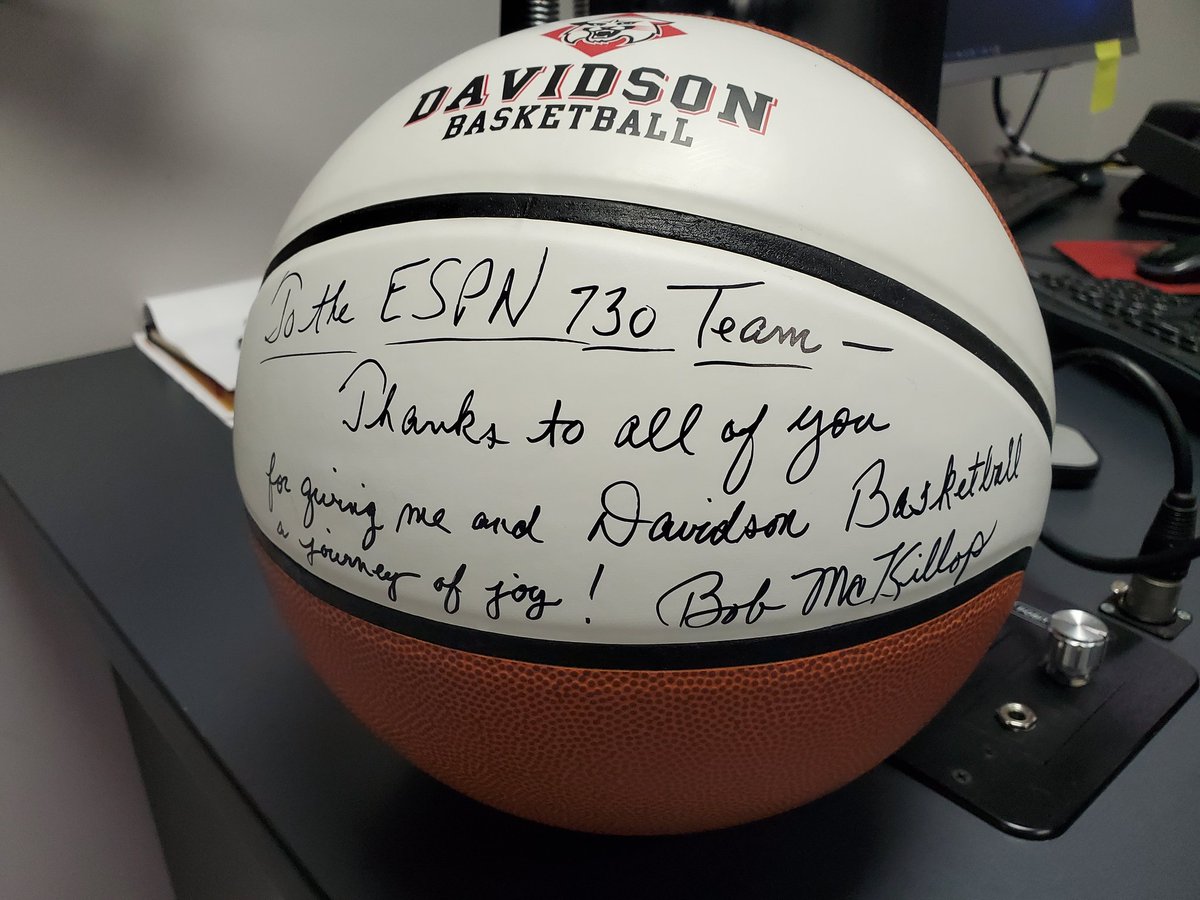 DAVIDSON
BASKETBALL
To the ESPN 730 Team —
Thanks to all of you
for giving me and Davidson Basketball
a journey of joy! Bob McKillop